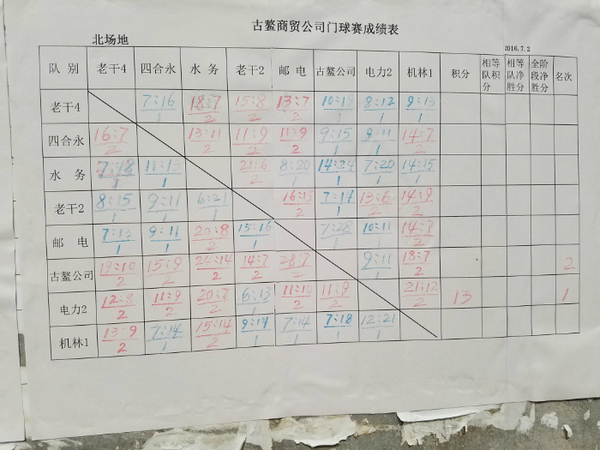 古鳌商贸公司门球赛成绩表
北场地 2016.7.2
队别 老干4 四合永 水务 老干2 邮电 古鳌公司 电力2 机林1 积分 相等队积分 相等队净胜分 全阶段净胜分 名次
老干4 7:16 1 18:7 2 15:8 2 13:7 2 1 8:12 1 9:13 1
四合永 16:7 2 13:11 2 11:9 2 11:9 2 9:15 1 9:11 1 14:7 2
水务 1 11:13 1 21:6 2 8:20 1 14:24 1 7:20 1 14:15 1
老干2 8:15 1 9:11 1 6:21 1 16:15 2 7:14 1 13:6 2 14:9 2
邮电 7:13 1 9:11 1 20:8 2 15:16 1 7:28 1 10:11 1 14:7 2
古鳌公司 2 15:9 2 24:14 2 14:7 2 28:7 2 9:11 1 18:7 2 2
电力2 12:8 2 11:9 2 20:7 2 6:13 1 11:10 2 11:9 2 21:12 2 13 1
机林1 13:9 2 7:14 1 15:14 2 9:14 1 7:14 1 7:18 1 12:21 1